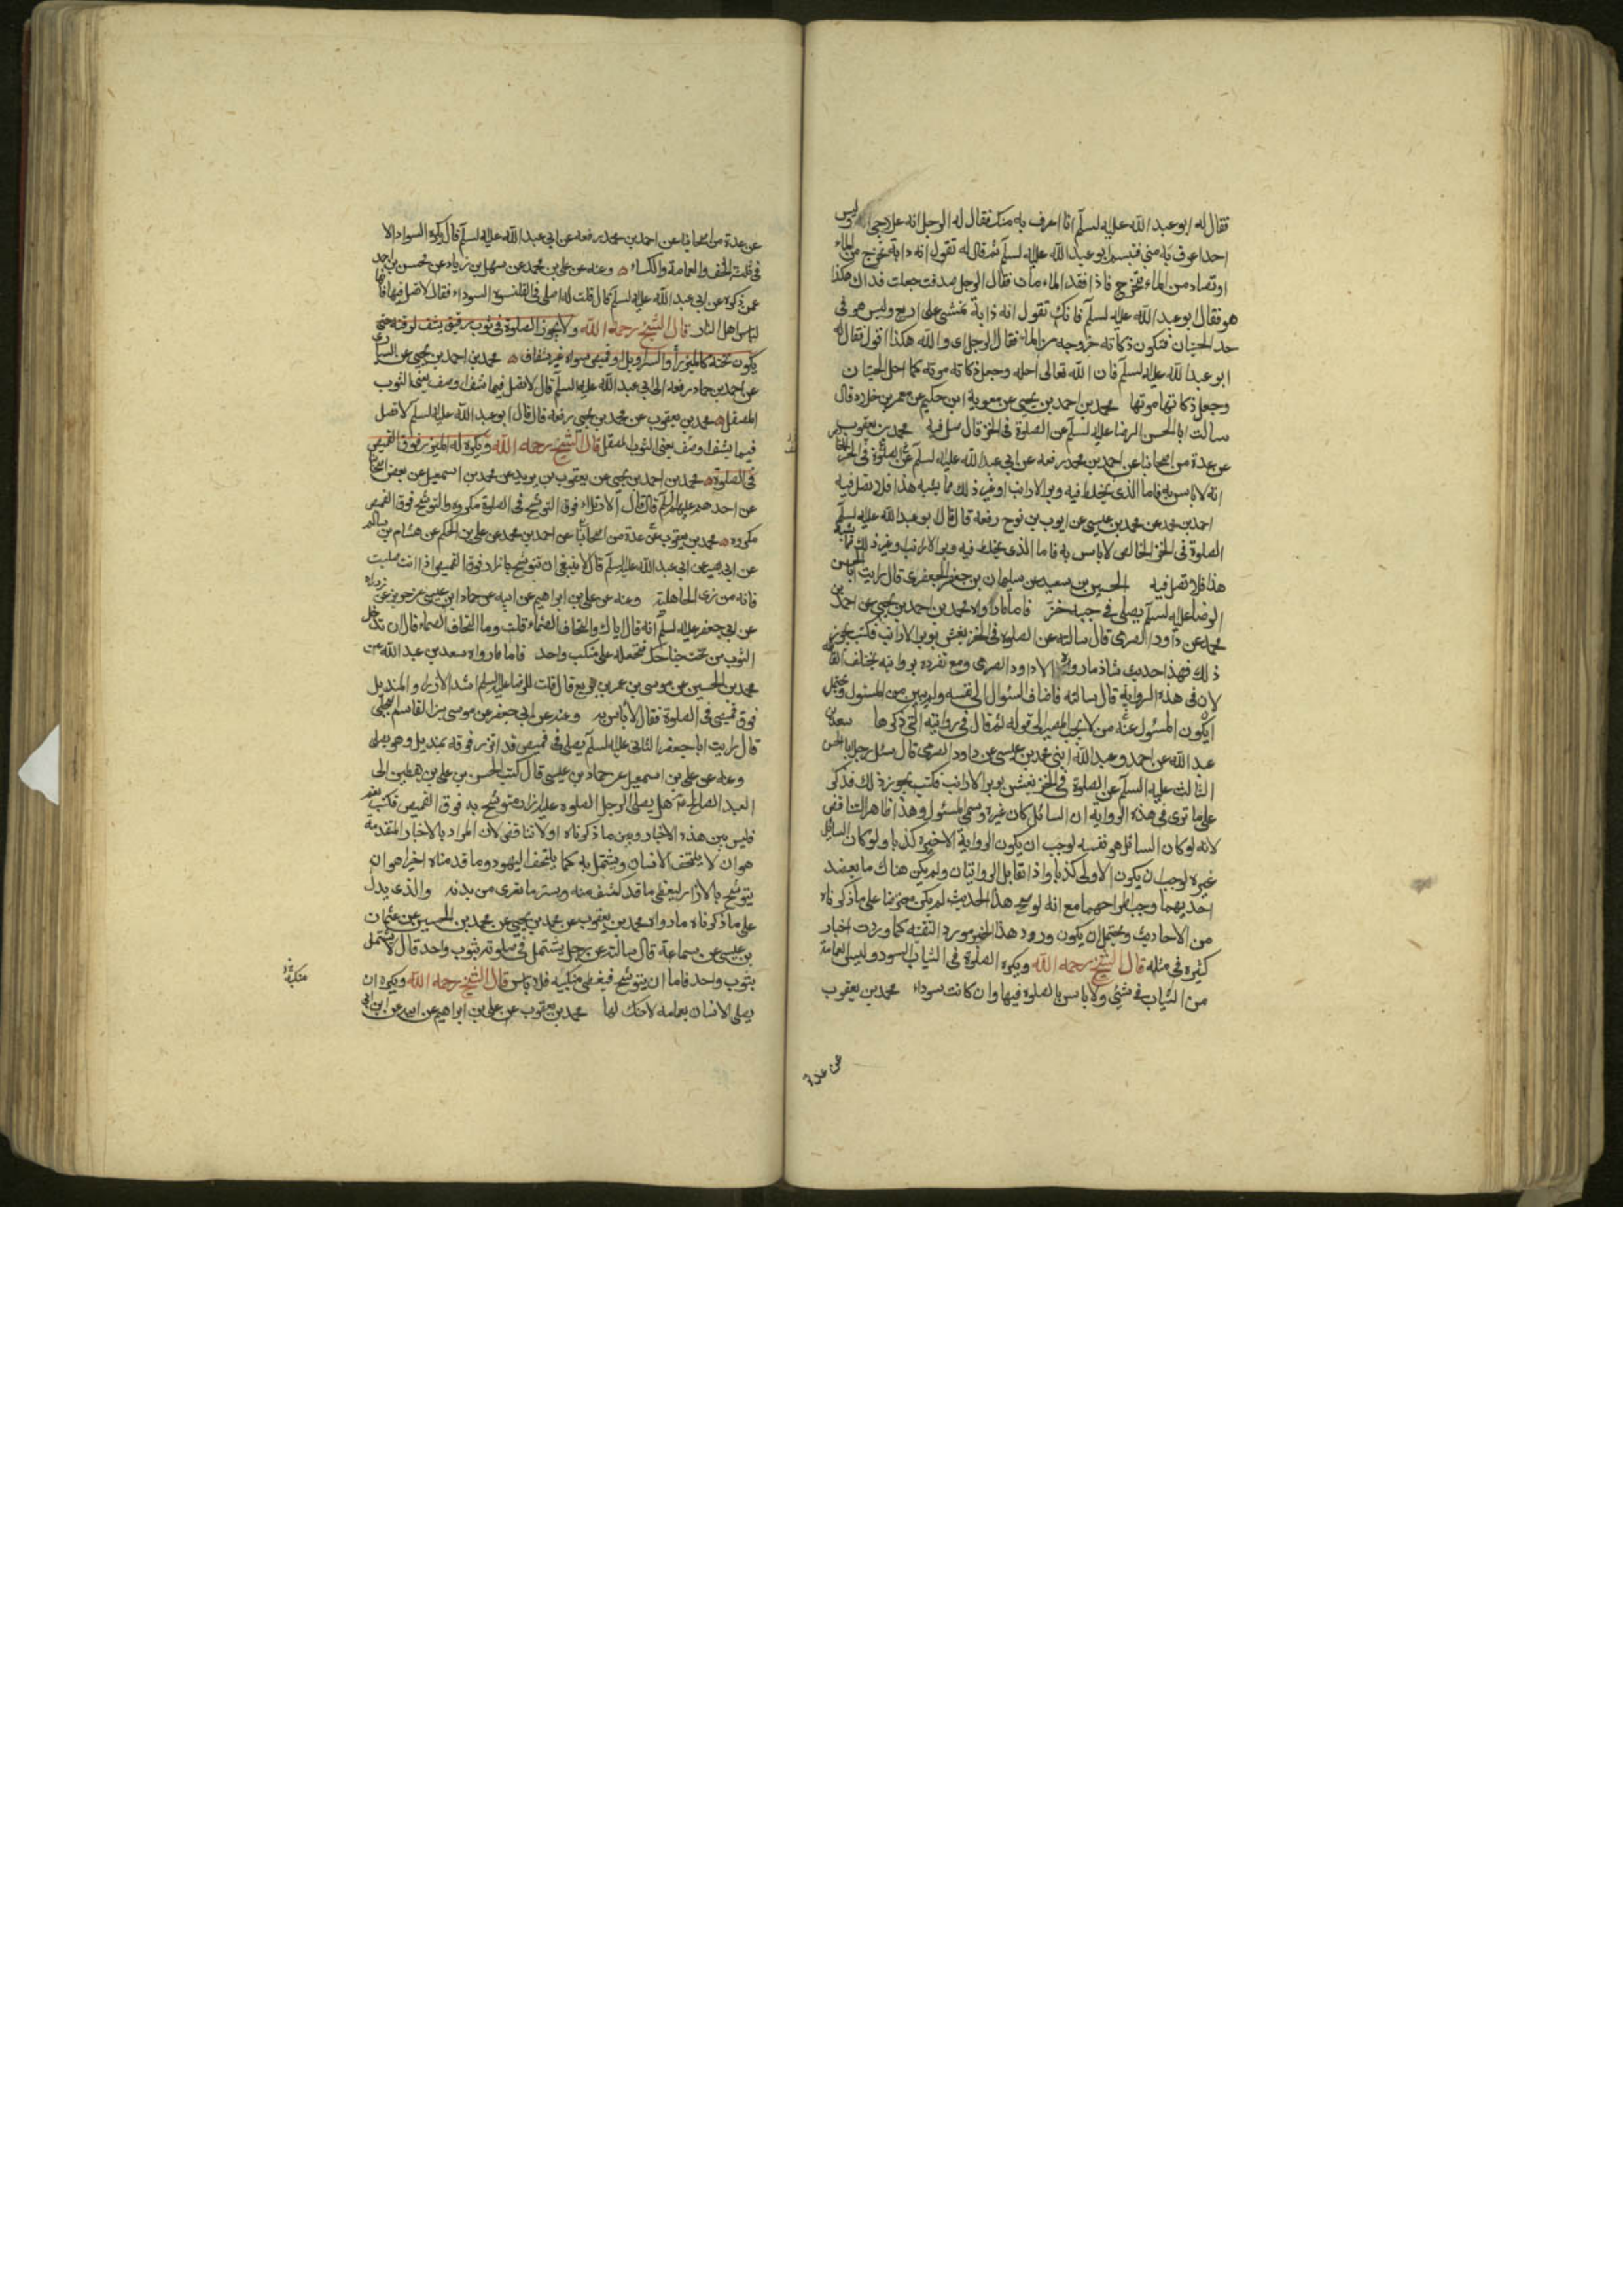 فقال له ابو عبد الله عليه لسلم انا اعرف به منك فقال له الرجل انه علاجي وليس
احد اعرف به مني فتبسم ابو عبد الله عليه لسلم ثم قال له تقول انه دابة تخرج من الماء
او تصاد من الماء فتخرج فاذا فقد الماء مات فقال الرجل صدقت جعلت فداك هكذا
هو فقال ابو عبد الله عليه لسلم فانك تقول انه دابة تمشي على اربع وليس هو في
حد الحيتان فتكون ذكاته خروجه من الماء فقال الرجل اي والله هكذا اقول فقال له
ابو عبد الله عليه لسلم فان الله تعالى احله وجعل ذكاته موته كما احل الحيتان
وجعل ذكاتها موتها محمد بن احمد بن يحيى عن معوية ابن حكيم عن معمر بن خلاد قال
سالت ابا الحسن الرضا عليه لسلم عن الصلوة في الخز قال صل فيه محمد بن يعقوب
عن عدة من اصحابنا عن احمد بن محمد رفعه عن ابي عبد الله عليه لسلم في الصلوة في الخز الخالص
انه لا باس به فاما الذي يخلط فيه وبر الارانب او غير ذلك مما يشبه هذا فلا تصل فيه
احمد بن محمد عن محمد بن عيسى عن ايوب بن نوح رفعه قال قال ابو عبد الله عليه لسلم
الصلوة في الخز الخالص لا باس به فاما الذي يخلط فيه وبر الارانب وغير ذلك مما يشبه
هذا فلا تصل فيه الحسين بن سعيد عن سليمان بن جعفر الجعفري قال رايت ابا الحسن
الرضا عليه لسلم يصلي في جبه خز فاما مارواه محمد بن احمد بن يحيى عن احمد بن
محمد عن داود الصرمي قال سالته عن الصلوة في الخز يغش بوبر الارانب فكتب يجوز
ذلك فهذا حديث شاذ مارواه الا داود الصرمي ومع تفرده بروايته يختلف
لان في هذه الرواية قال سالته فاضاف السئوال الى نفسه ولم يبين من المسئول ويحتمل
ان يكون المسئول عنه من لا يجب المصير الى قوله ثم قال في روايته التي ذكرها سعد بن
عبد الله عن احمد وعبد الله ابني محمد بن عيسى عن داود الصرمي قال سئل رجل ابا الحسن
الثالث عليه السلم عن الصلوة في الخز يغش بوبر الارانب فكتب يجوز ذلك فذكر
على ما ترى في هذه الرواية ان السائل كان غيره وسمى المسئول وهذا ظاهر التناقض
لانه لو كان السائل هو نفسه لوجب ان يكون الرواية الاخيرة كذبا ولو كان السائل
غيره لوجب ان يكون الاولى كذبا واذا تقابل الروايتان ولم يكن هناك ما يعضد
احديهما وجب اطراحهما مع انه لو صح هذا الحديث لم يكن معترضا على ما ذكرناه
من الاحاديث ويحتمل ان يكون ورود هذا الخبر مورد التقية كما وردت اخبار
كثيره في مثله قال الشيخ رحمه الله ويكره الصلوة في الثياب السود وليس العمامة
من الثياب في شيئ ولا باس بالصلوه فيها وان كانت سوداء محمد بن يعقوب
عن عدة
عن عدة من اصحابنا عن احمد بن محمد رفعه عن ابي عبد الله عليه لسلم قال يكره السواد الا
في ثلثه الخف والعمامة والكساء وعنه عن علي بن محمد عن سهل بن زياد عن محسن بن احمد
عمن ذكره عن ابي عبد الله عليه لسلم قال قلت له اصلي في القلنسوه السوداء فقال لا تصل فيها فانها
لباس اهل النار قال الشيخ رحمه الله ولا يجوز الصلوة في ثوب رقيق يشف لرقته حتى
يكون تحته كالميزر او السراويل او قميص سواه غير شفاف محمد بن احمد بن يحيى عن السياري
عن احمد بن حماد رفعه الى ابي عبد الله عليه السلم قال لا تصل فيما شف او صف يعني الثوب
المصقل محمد بن يعقوب عن محمد بن يحيى رفعه قال قال ابو عبد الله عليه لسلم لا تصل
فيما يشف او صف يعني الثوب المصقل قال الشيخ رحمه الله ويكره له الميزر فوق القميص
في الصلوة محمد بن احمد بن يحيى عن يعقوب بن يزيد عن محمد بن اسمعيل عن بعض اصحابنا
عن احدهم عليهم السلم قال قال الارتداء فوق التوشح في الصلوة مكروه والتوشح فوق القميص
مكروه محمد بن يعقوب عن عدة من اصحابنا عن احمد بن محمد عن علي بن الحكم عن هشام بن سالم
عن ابي بصير عن ابي عبد الله عليه السلم قال لا ينبغي ان تتوشح بازار فوق القميص اذا انت صليت
فانه من زى الجاهلية وعنه عن علي بن ابراهيم عن ابيه عن حماد ابن عيسى عن حريز عن زراره
عن ابي جعفر عليه لسلم انه قال اياك والتحاف الصماء قلت وما التحاف الصماء قال ان تدخل
الثوب من تحت جناحك فتجعله على منكب واحد فاما مارواه سعد بن عبد الله عن
محمد بن الحسين عن موسى بن عمر بن بزيع قال قلت للرضا عليه السلم اشد الازار والمنديل
فوق قميصي في الصلوة فقال لا باس به وعنه عن ابي جعفر عن موسى بن القاسم البجلي
قال رايت ابا جعفر الثاني عليه لسلم يصلي في قميص قد اتزر فوقه بمنديل وهو يصلي
وعنه عن علي بن اسمعيل عن حماد بن عيسى قال كتب الحسن بن علي بن يقطين الى
العبد الصالح هل يصلي الرجل الصلوه عليه ازار متوشح به فوق القميص فكتب نعم
فليس بين هذه الاخبار وبين ما ذكرناه اولا تناقض لان المراد بالاخبار المتقدمة
هو ان لا يلتحف الانسان ويشتمل به كما يلتحف اليهود وما قدمناه اخيرا هو ان
يتوشح بالازار ليغطي ما قد كشف منه ويستر ما تعرى من بدنه والذي يدل
على ما ذكرناه مارواه محمد بن يعقوب عن محمد بن يحيى عن محمد بن الحسين عن عثمان
بن عيسى عن سماعة قال سالته عن رجل يشتمل في صلوته بثوب واحد قال لا يشتمل
بثوب واحد فاما ان يتوشح فيغطي منكبيه فلا باس قال الشيخ رحمه الله ويكره ان
يصلي الانسان بعمامه لا حنك لها محمد بن يعقوب عن علي بن ابراهيم عن ابيه عن ابن ابي
منكبيه